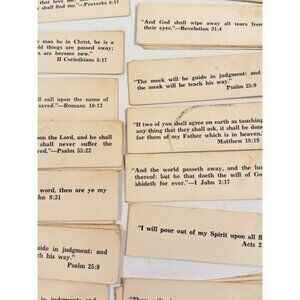 that love me,
shall find me."—Proverbs 8:17
man be in Christ, he is a
old things are passed away;
gs are become new."
II Corinthians 5:17
all call upon the name of
saved."—Romans 10:13
pon the Lord, and he shall
shall never suffer the
oved."—Psalm 55:22
word, then are ye my
John 8:31
guide in judgment: and
ch his way."
Psalm 25:9
in judgment: and
"And God shall wipe away all tears from
their eyes."—Revelation 21:4
"The meek will he guide in judgment: and
the meek will he teach his way."
Psalm 25:9
"If two of you shall agree on earth as touching
any thing that they shall ask, it shall be done
for them of my Father which is in heaven.
Matthew 18:19
"And the world passeth away, and the lus
thereof: but he that doeth the will of Go
abideth for ever."—I John 2:17
"I will pour out of my Spirit upon all fl
Acts 2